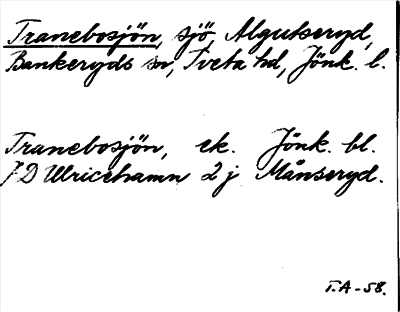 Tranebosjön, sjö Algutseryd,
Bankeryds sn, Tveta hd, Jönk. l.
Tranebosjön, ek. Jönk. bl.
7 D Ulricehamn 2 j Månseryd.
T.A-58.